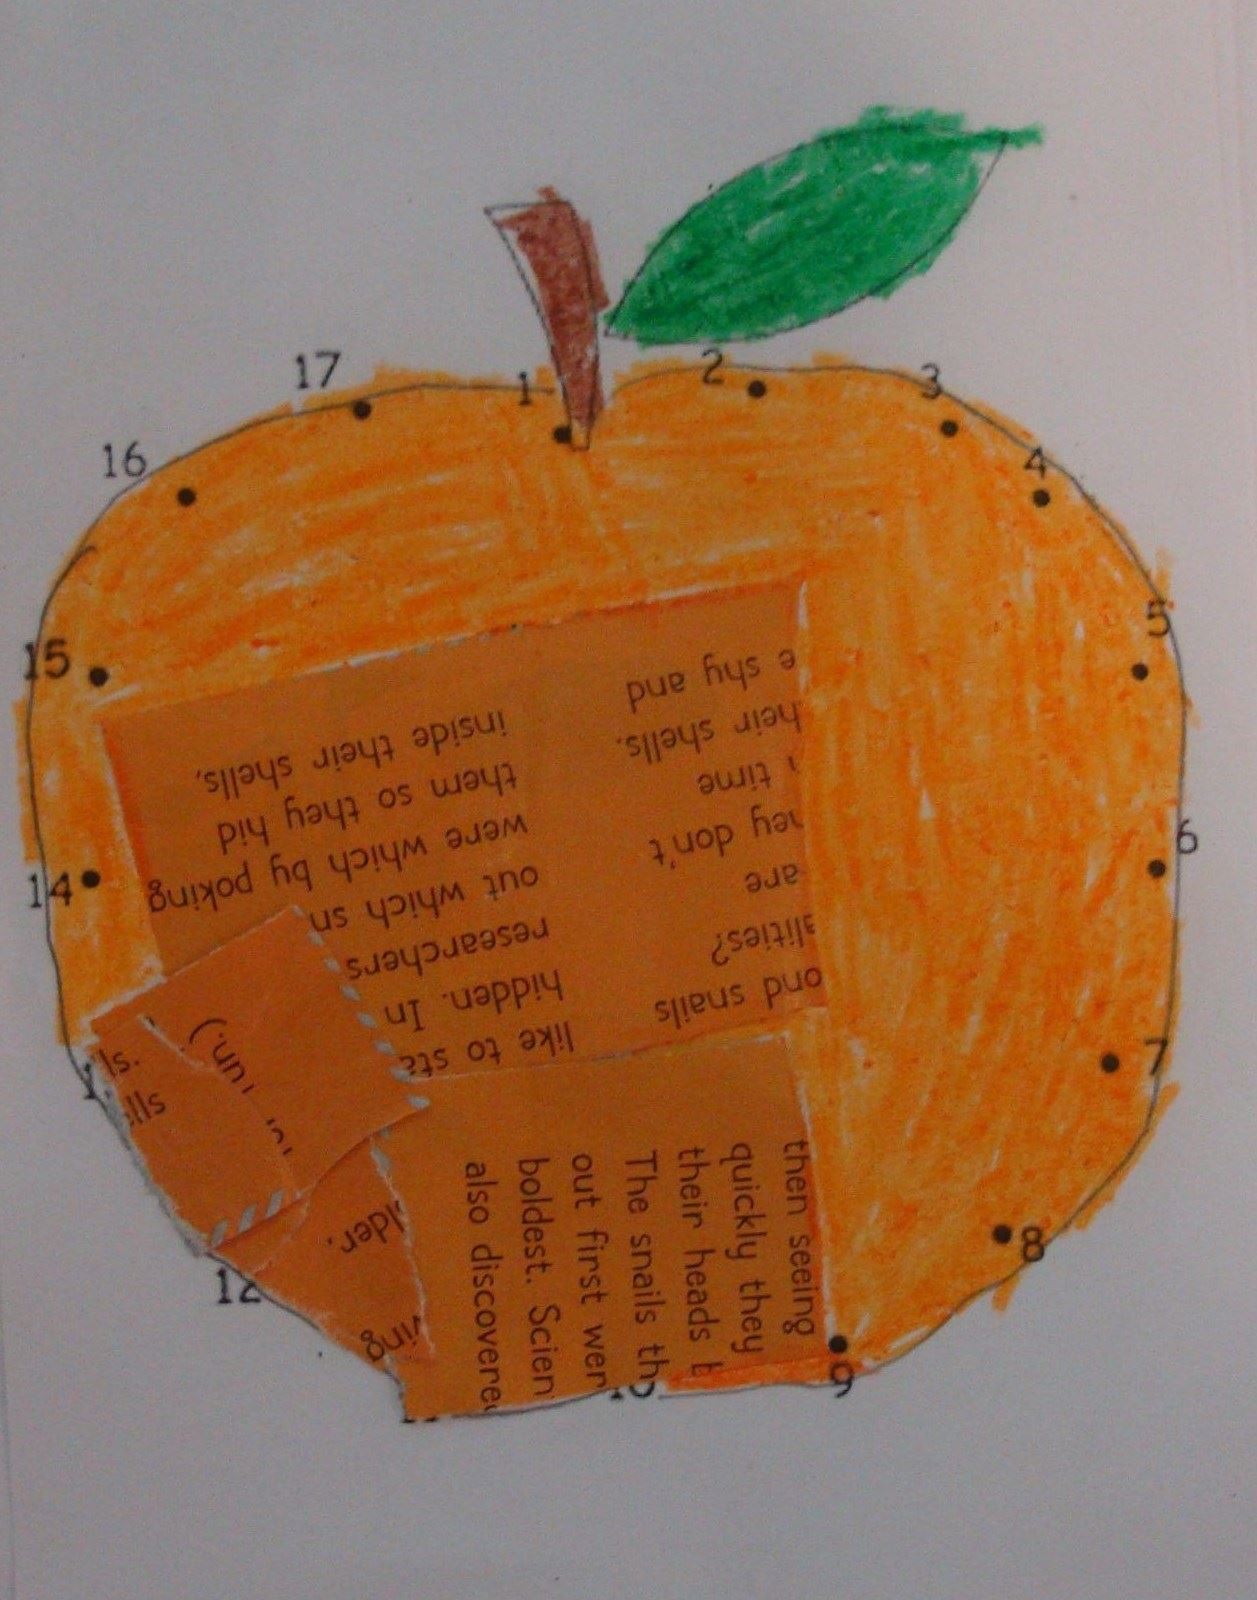 17
1
2
3
16
4
15
5
14
6
7
8
12
9
10
like to sta
hidden. In
researchers
out which sn
were which by poking
them so they hid
inside their shells.
ond snails
alities?
are
hey don't
time
heir shells.
e shy and
un.)
lder.
ving
then seeing
quickly they
their heads b
The snails th
out first wer
boldest. Scien
also discovered